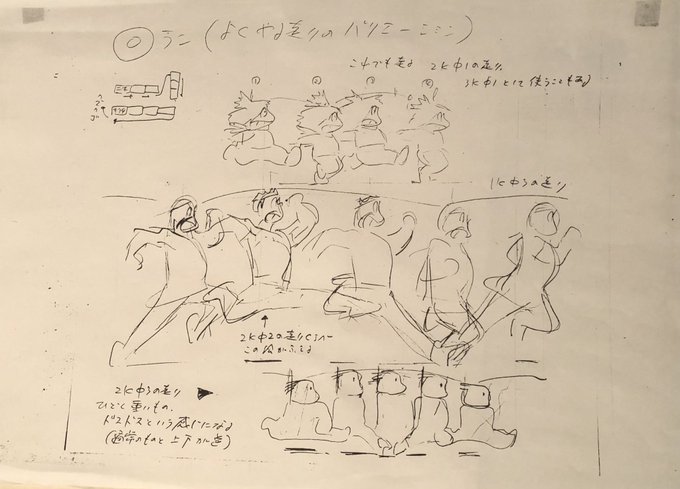 ◎ラン（よくやる走りのバリエーション）
これでも走る 2K中1の走り.
3K中1として使うこともある
① ② ③ ④
1K中3の走り
2K中2の走り
この
2K中3の走り
ひどく重いもの.
ドスドスという感じになる
(通常のものと上下が逆)